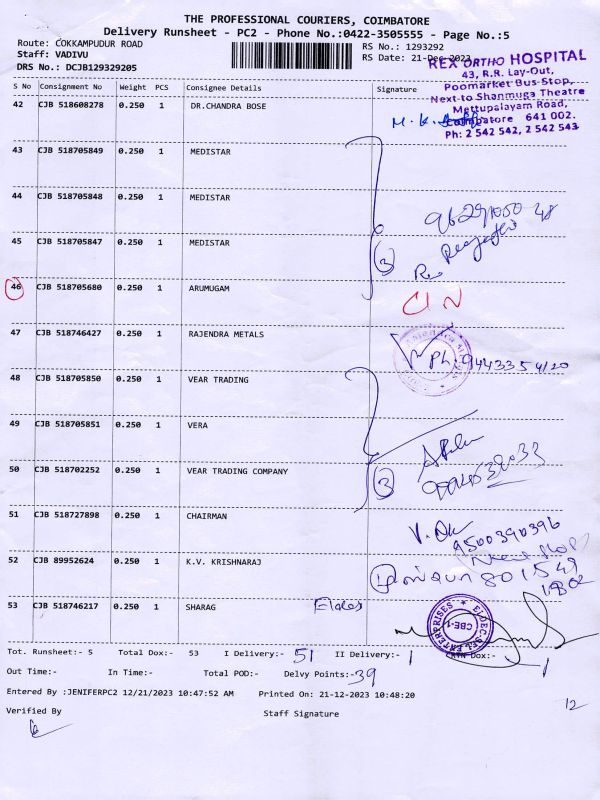 THE PROFESSIONAL COURIERS, COIMBATORE
Delivery Runsheet - PC2 - Phone No.:0422-3505555 - Page No.:5
Route: COKKAMPUDUR ROAD
RS No.: 1293292
Staff: VADIVU
RS Date: 21-Dec-2023
DRS No.: DCJB129329205
REX ORTHO HOSPITAL
43, R.R. Lay-Out,
Poomarket Bus Stop,
Next to Shanmuga Theatre
Mettupalayam Road,
Coimbatore 641 002.
Ph: 2 542 542, 2 542 543
S No Consignment No Weight PCS Consignee Details Signature
42 CJB 518608278 0.250 1 DR.CHANDRA BOSE
43 CJB 518705849 0.250 1 MEDISTAR
44 CJB 518705848 0.250 1 MEDISTAR
45 CJB 518705847 0.250 1 MEDISTAR
3
46 CJB 518705680 0.250 1 ARUMUGAM
47 CJB 518746427 0.250 1 RAJENDRA METALS
48 CJB 518705850 0.250 1 VEAR TRADING
49 CJB 518705851 0.250 1 VERA
50 CJB 518702252 0.250 1 VEAR TRADING COMPANY
3
51 CJB 518727898 0.250 1 CHAIRMAN
9500390396
52 CJB 89952624 0.250 1 K.V. KRISHNARAJ
53 CJB 518746217 0.250 1 SHARAG
CBE-1
Tot. Runsheet:- 5 Total Dox:- 53 I Delivery:- 51 II Delivery:- 1 Dox:- 1
Out Time:- In Time:- Total POD:- Delvy Points:- 39
Entered By :JENIFERPC2 12/21/2023 10:47:52 AM Printed On: 21-12-2023 10:48:20
12
Verified By Staff Signature